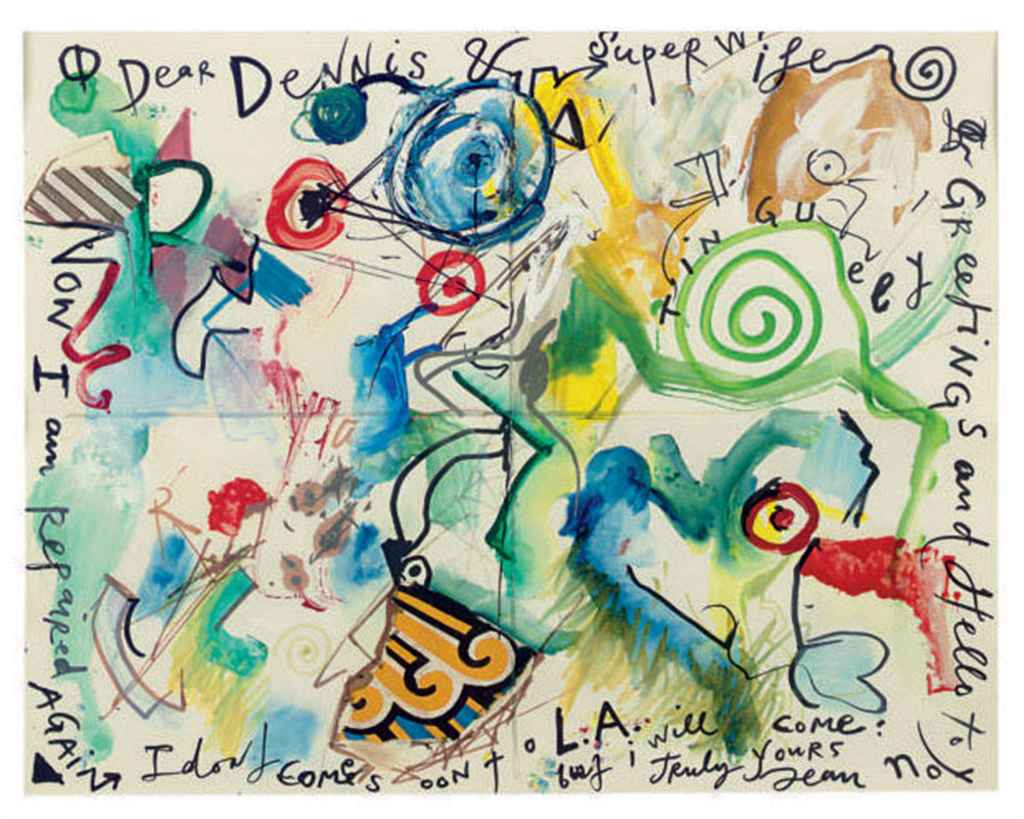 Dear Dennis & Super Wife
Greetings and Hello to
TiNGUely
Now I am repaired AGAin
I dont come soon to L.A.
but i will come:
Truly Yours
Jean